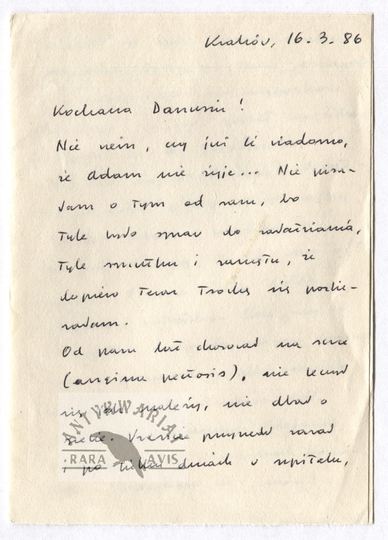 Kraków, 16.3.86
Kochana Danusiu!
Nie wiem, czy już Ci wiadomo,
że Adam nie żyje... Nie pisa-
łam o tym od razu, bo
tyle było spraw do załatwiania,
tyle smutku i zamętu, że
dopiero teraz trochę się pozbie-
rałam.
Od lat chorował na serce
(angina pectoris), nie leczył
się jak należy, nie dbał o
siebie. Wreszcie przyszedł zawał
i po kilku dniach w szpitalu,
ANTYKWARIAT
RARA AVIS